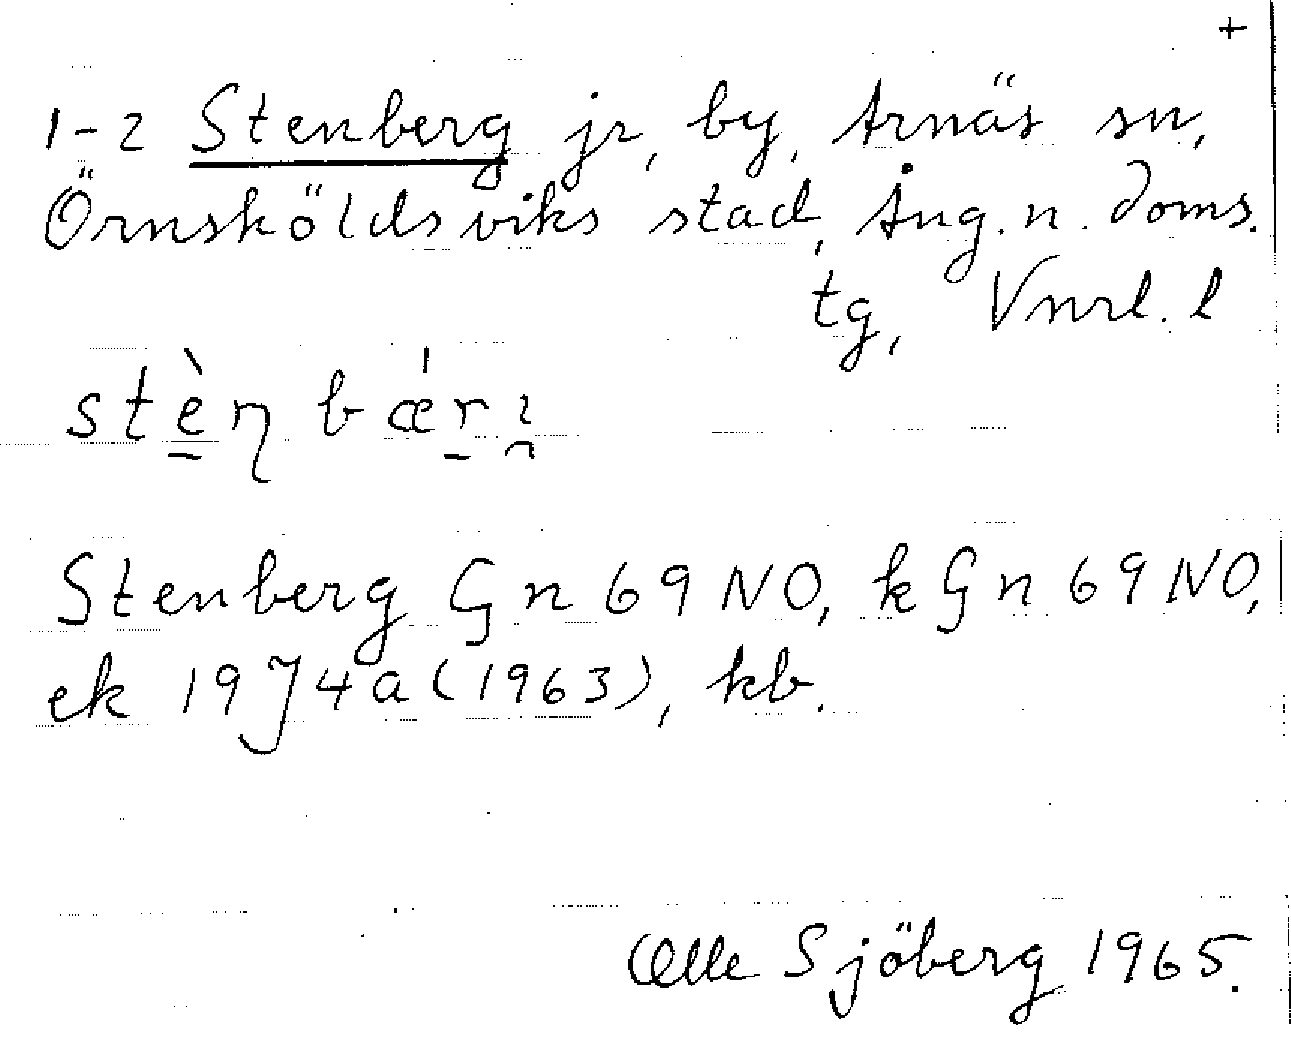 +
1-2 Stenberg jr, by, Arnäs sn,
Örnsköldsviks stad, Ång. n. doms.
tg, Vnrl. l
Stenberg Gn 69 NO, k Gn 69 NO,
ek 19J4a (1963), kb.
Olle Sjöberg 1965.